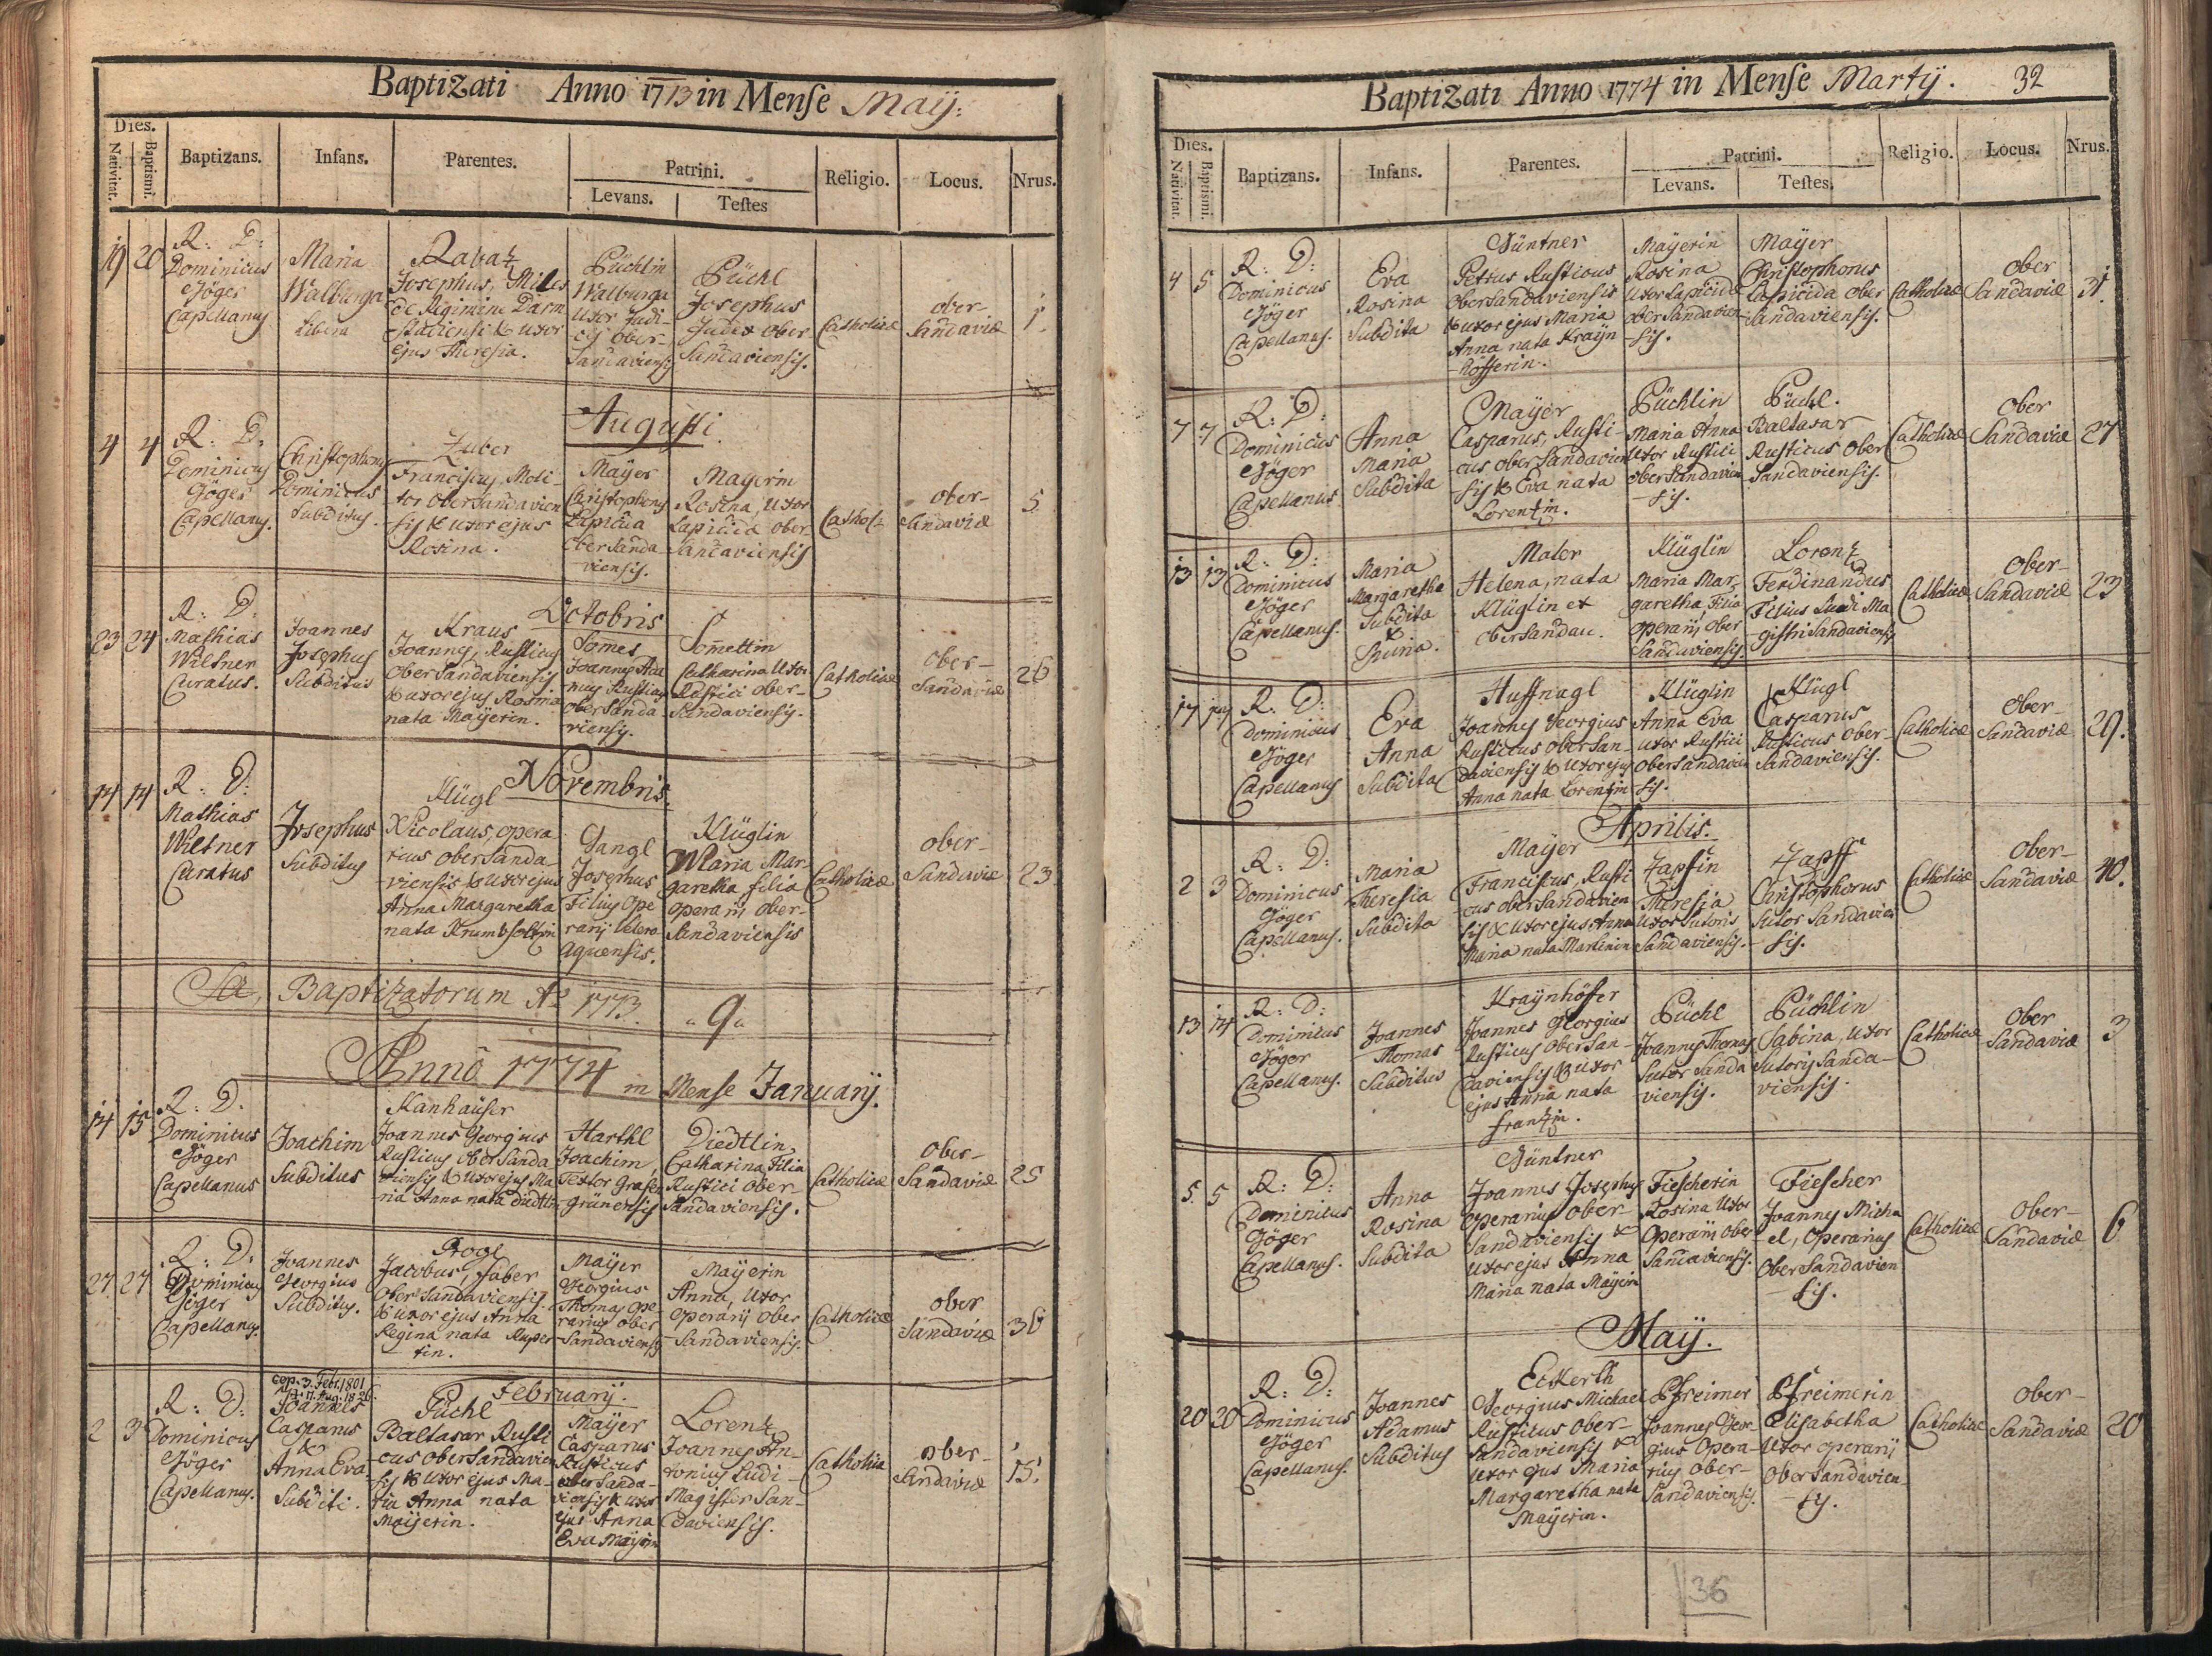 Baptizati Anno 1773 in Mense Maÿ:
Dies.
Nativitat.
Baptismi.
Baptizans.
Infans.
Parentes.
Patrini.
Levans.
Testes
Religio.
Locus.
Nrus.
19 20
R: D:
Dominicus
Jöger
Capellanus
Maria
Walburga
Libera
Rabatz
Josephus, Miles
de Regimine Darm
stadiensi & uxor
ejus Theresia.
Püchlin
Walburga
Uxor Judi-
cis Ober-
Sandaviensis
Püchl
Josephus
Judex Ober
Sandaviensis.
Catholicae
ober-
Sandaviae
1.
Augusti
4 4
R: D:
Dominicus
Jöger
Capellanus.
Christophorus
Dominicus
Subditus.
Zuber
Franciscus, Moli-
tor Ober Sandavien
sis & uxor ejus
Rosina.
Mayer
Christophorus
Lapicida
Ober Sanda-
viensis.
Mayerin
Rosina, Uxor
Lapicidae ober-
Sandaviensis
Cathol:
ober-
Sandaviae
5
Octobris
23 24
R: D:
Mathias
Wiltner
Curatus.
Joannes
Josephus
Subditus
Kraus
Joannes, Rusticus
Ober Sandaviensis
& uxor ejus Rosina
nata Maÿerin.
Som̄er
Joannes Ada
mus Rusticus
ober Sanda-
viensis.
Som̄ettin
Catharina Uxor
Rustici ober-
Sandaviensis.
Catholicae
ober-
Sandaviae
26
Novembris
14 14
R: D:
Mathias
Wiltner
Curatus
Josephus
Subditus
Klügl
Nicolaus, opera
rius ober Sanda-
viensis & uxor ejus
Anna Margaretha
nata Krumbholtzin
Gangl
Josephus
Filius Ope
rarij Vetero
aquensis.
Klüglin
Maria Mar-
garetha filia
operarij ober-
Sandaviensis
Catholicae
ober-
Sandaviae
23
Sa, Baptizatorum Ao 1773. "9"
Anno 1774 in Mense Januarij.
14 15
R: D.
Dominicus
Jöger
Capellanus
Joachim
Subditus
Kanhaüser
Joannes Georgius
Rusticus ober Sanda
viensis & uxor ejus Ma
ria Anna nata Diedtlin
Harthl
Joachim,
Textor Grasen
grünensis
Diedtlin
Catharina, Filia
Rustici ober-
Sandaviensis.
Catholicae
Ober-
Sandaviae
25
27 27
R: D:
Dominicus
Jöger
Capellanus.
Joannes
Georgius
Subditus.
Progl
Jacobus, faber
Ober Sandaviensis.
& uxor ejus Anna
Regina nata Ruper
tin.
Mayer
Georgius
Thomas Ope
rarius ober
Sandaviensis
Maÿerin
Anna, Uxor
operarij Ober
Sandaviensis.
Catholicae
ober
Sandaviae
30
Februarij.
2 3
R: D:
Dominicus
Jöger
Capellanus.
cop. 3. Febr. 1801
Joannes
Casparus
&
Anna Eva
Subditi.
Püchl
Baltasar Rusti
cus ober Sandavien
sis & uxor ejus Ma-
ria Anna nata
Maÿerin.
Maÿer
Casparus
Rusticus
ober Sanda-
viensis & uxor
ejus Anna
Eva Maÿerin
Lorentz
Joannes An-
tonius Ludi-
Magister San-
daviensis.
Catholicae
ober-
Sandaviae
15.
Baptizati Anno 1774 in Mense Martÿ. 32
Dies.
Nativitat.
Baptismi.
Baptizans.
Infans.
Parentes.
Patrini.
Levans.
Testes.
Religio.
Locus.
Nrus.
4 5
R: D:
Dominicus
Jöger
Capellanus.
Eva
Rosina
Subdita
Güntner
Petrus Rusticus
Ober Sandaviensis
& uxor ejus Maria
Anna nata Kraÿn
höfferin.
Maÿerin
Rosina
Uxor Lapicidae
ober Sandavien
sis.
Maÿer
Christophorus
Lapicida Ober
Sandaviensis.
Catholicae
ober
Sandaviae
31.
7 7
R: D:
Dominicus
Jöger
Capellanus
Anna
Maria
Subdita
Maÿer
Casparus, Rusti-
cus ober Sandavien
sis & Eva nata
Lorentzin.
Püchlin
Maria Anna
Uxor Rustici
ober Sandavien
sis.
Püchl.
Baltasar
Rusticus Ober
Sandaviensis.
Catholicae
Ober
Sandaviae
27
13 13
R: D:
Dominicus
Jöger
Capellanus.
Maria
Margaretha
Subdita
&
Spuria.
Mater
Helena, nata
Klüglin ex
ober Sandau.
Klüglin
Maria Mar-
garetha, Filia
Operarij Ober
Sandaviensis.
Lorentz
Ferdinandus
Filius Ludi Ma
gistri Sandaviensis
Catholicae
Ober-
Sandaviae
23
17 17
R: D:
Dominicus
Jöger
Capellanus
Eva
Anna
Subdita
Huffnagl
Joannes Georgius
Rusticus ober San-
daviensis & Uxor ejus
Anna nata Lorentzin
Klüglin
Anna Eva
Uxor Rustici
ober Sandavien
sis.
Klügl
Casparus
Rusticus ober-
Sandaviensis.
Catholicae
ober-
Sandaviae
29.
Aprilis.
2 3
R: D:
Dominicus
Jöger
Capellanus.
Maria
Theresia
Subdita
Maÿer
Franciscus, Rusti
cus ober Sandavien
sis & Uxor ejus Anna
Maria nata Martinin
Zapfin
Theresia
Uxor Sutoris
Sandaviensis.
Zapff
Christophorus
Sutor Sandavien
sis.
Catholicae
ober-
Sandaviae
40.
13 14
R: D:
Dominicus
Jöger
Capellanus.
Joannes
Thomas
Subditus
Kraÿnhöfer
Joannes Georgius
Rusticus Ober San-
daviensis & uxor
ejus Anna nata
frantzin.
Püchl
Joannes Thomas
Sutor Sanda
viensis.
Püchlin
Sabina, Uxor
Sutoris Sanda-
viensis.
Catholicae
Ober
Sandaviae
3
5. 5
R: D:
Dominicus
Jöger
Capellanus.
Anna
Rosina
Subdita
Güntner
Joannes Josephus
operarius ober-
Sandaviensis &
Uxor ejus Anna
Maria nata Maÿerin
Fiescherin
Rosina Uxor
Operarij Ober
Sandaviensis.
Fiescher
Joannes Micha
el, Operarius
Ober Sandavien
sis.
Catholicae
ober-
Sandaviae
6
Maÿ.
20 20
R: D:
Dominicus
Jöger
Capellanus.
Joannes
Adamus
Subditus
Eckerth
Georgius Michael
Rusticus Ober-
Sandaviensis &
Uxor ejus Maria
Margaretha nata
Maÿerin.
Pfreimer
Joannes Geor-
gius Opera-
rius Ober-
Sandaviensis.
Pfreimerin
Elisabetha
Uxor operarij
Ober Sandavien
sis.
Catholicae
ober-
Sandaviae
20
36